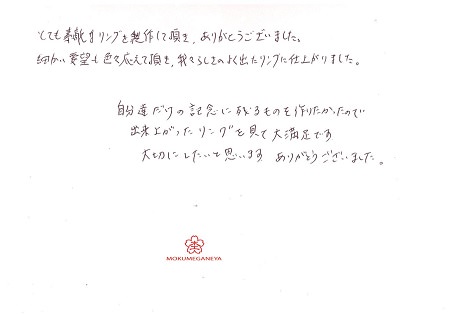 とても素敵なリングを製作して頂き、ありがとうございました。
細かい要望も色々応えて頂き、我々らしさのよく出たリングに仕上がりました。
自分達だけの記念に残るものを作りたかったので
出来上がったリングを見て大満足です
大切にしたいと思います ありがとうございました。
MOKUMEGANEYA